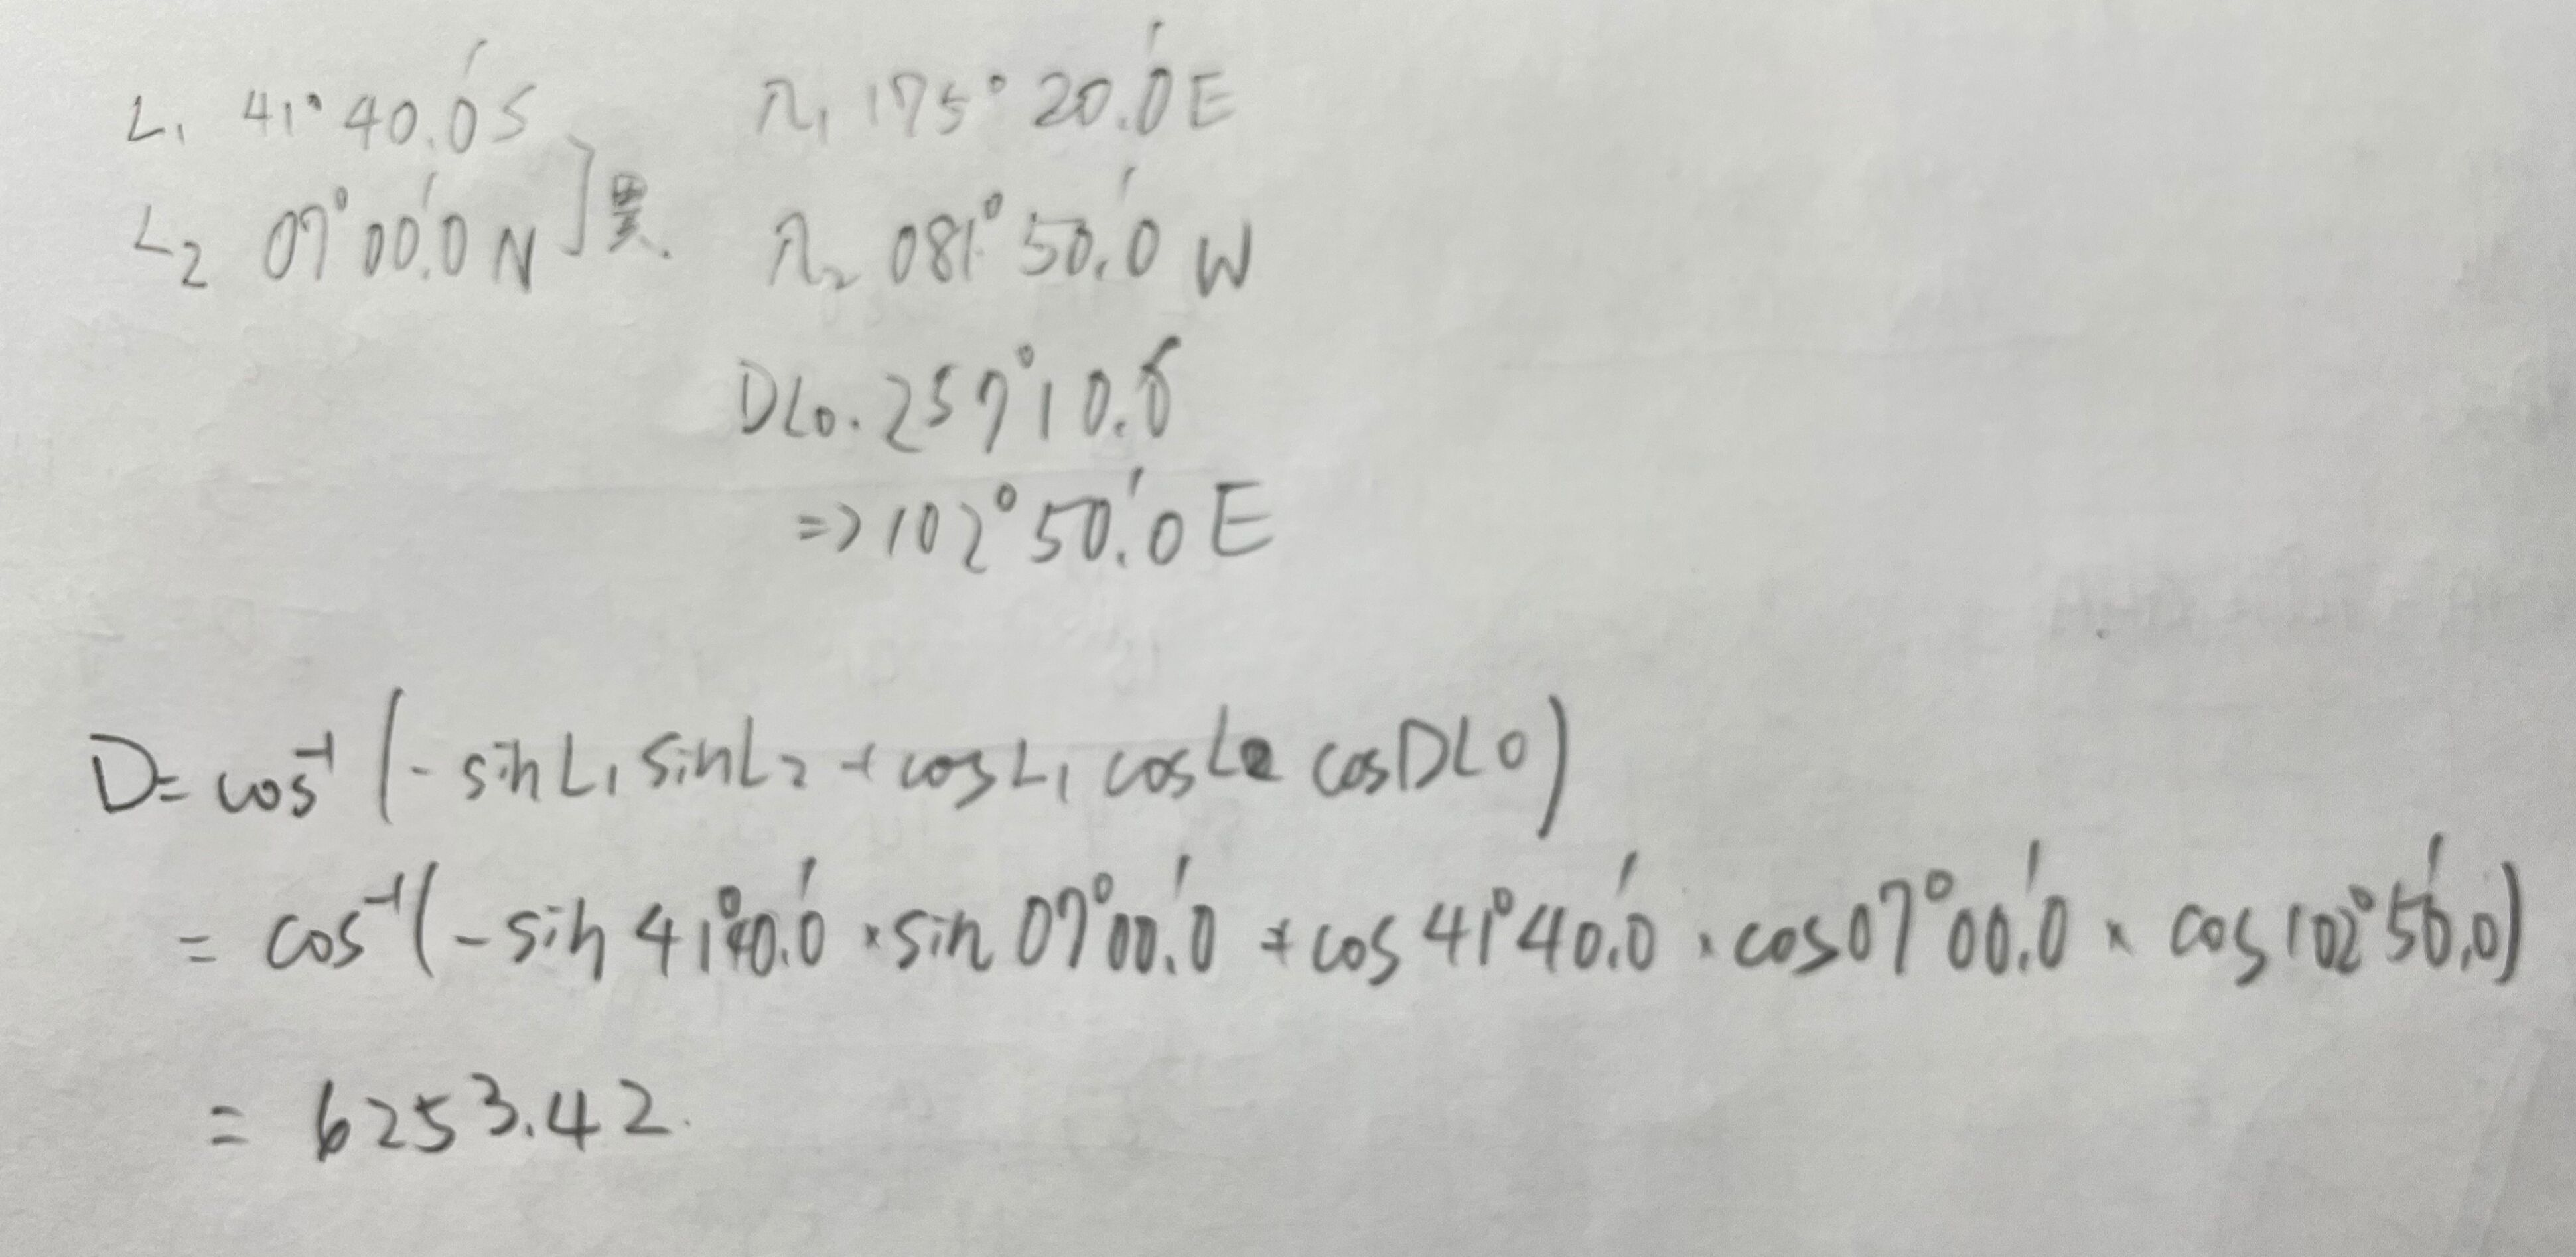 L₁ 41°40.'0 S λ₁ 175°20.'0 E
L₂ 07°00.'0 N ] 異. λ₂ 081°50.'0 W
DLo. 257°10.'0
=> 102°50.'0 E
D = cos⁻¹ (- sin L₁ sin L₂ + cos L₁ cos L₂ cos DLo)
= cos⁻¹ (- sin 41°40.'0 × sin 07°00.'0 + cos 41°40.'0 × cos 07°00.'0 × cos 102°50.'0)
= 6253.42.